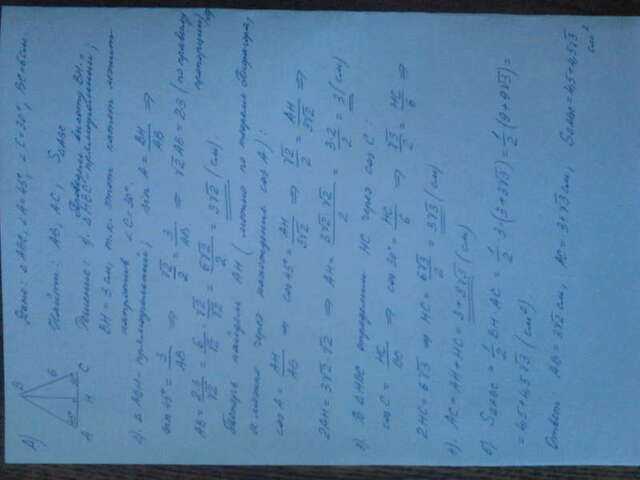 Дано: △ABC, ∠A=45°, ∠C=30°, BC=6см.
Найти: AB, AC, S△ABC
Решение: 1.
△HBC - прямоугольный,
BH = 3 см, т.к. этот катет лежит
напротив ∠C=30°.
2) △ABH - прямоугольный, sin A = BH/AB ⇒
sin 45° = 3/AB ⇒ √2/2 = 3/AB ⇒ √2 AB = 2·3 (по правилу пропорции)
AB = 2·3/√2 = 6/√2 · √2/√2 = 6√2/2 = 3√2 (см).
Теперь найдём AH (можно по теореме Пифагора,
а можно через cos A):
cos A = AH/AB ⇒ cos 45° = AH/3√2 ⇒ √2/2 = AH/3√2 ⇒
2AH = 3√2·√2 ⇒ AH = 3√2·√2/2 = 3·2/2 = 3 (см)
3) В △HBC определим HC через cos C:
cos C = HC/BC ⇒ cos 30° = HC/6 ⇒ √3/2 = HC/6 ⇒
2HC = 6√3 ⇒ HC = 6√3/2 = 3√3 (см)
4) AC = AH + HC = 3+3√3 (см)
5) S△ABC = 1/2 BH·AC = 1/2 · 3(3+3√3) = 1/2 (9+9√3) =
= 4,5+4,5√3 (см²)
Ответ: AB = 3√2 см, AC = 3+3√3 см, S△ABC = 4,5+4,5√3 см²
B
6
A H C